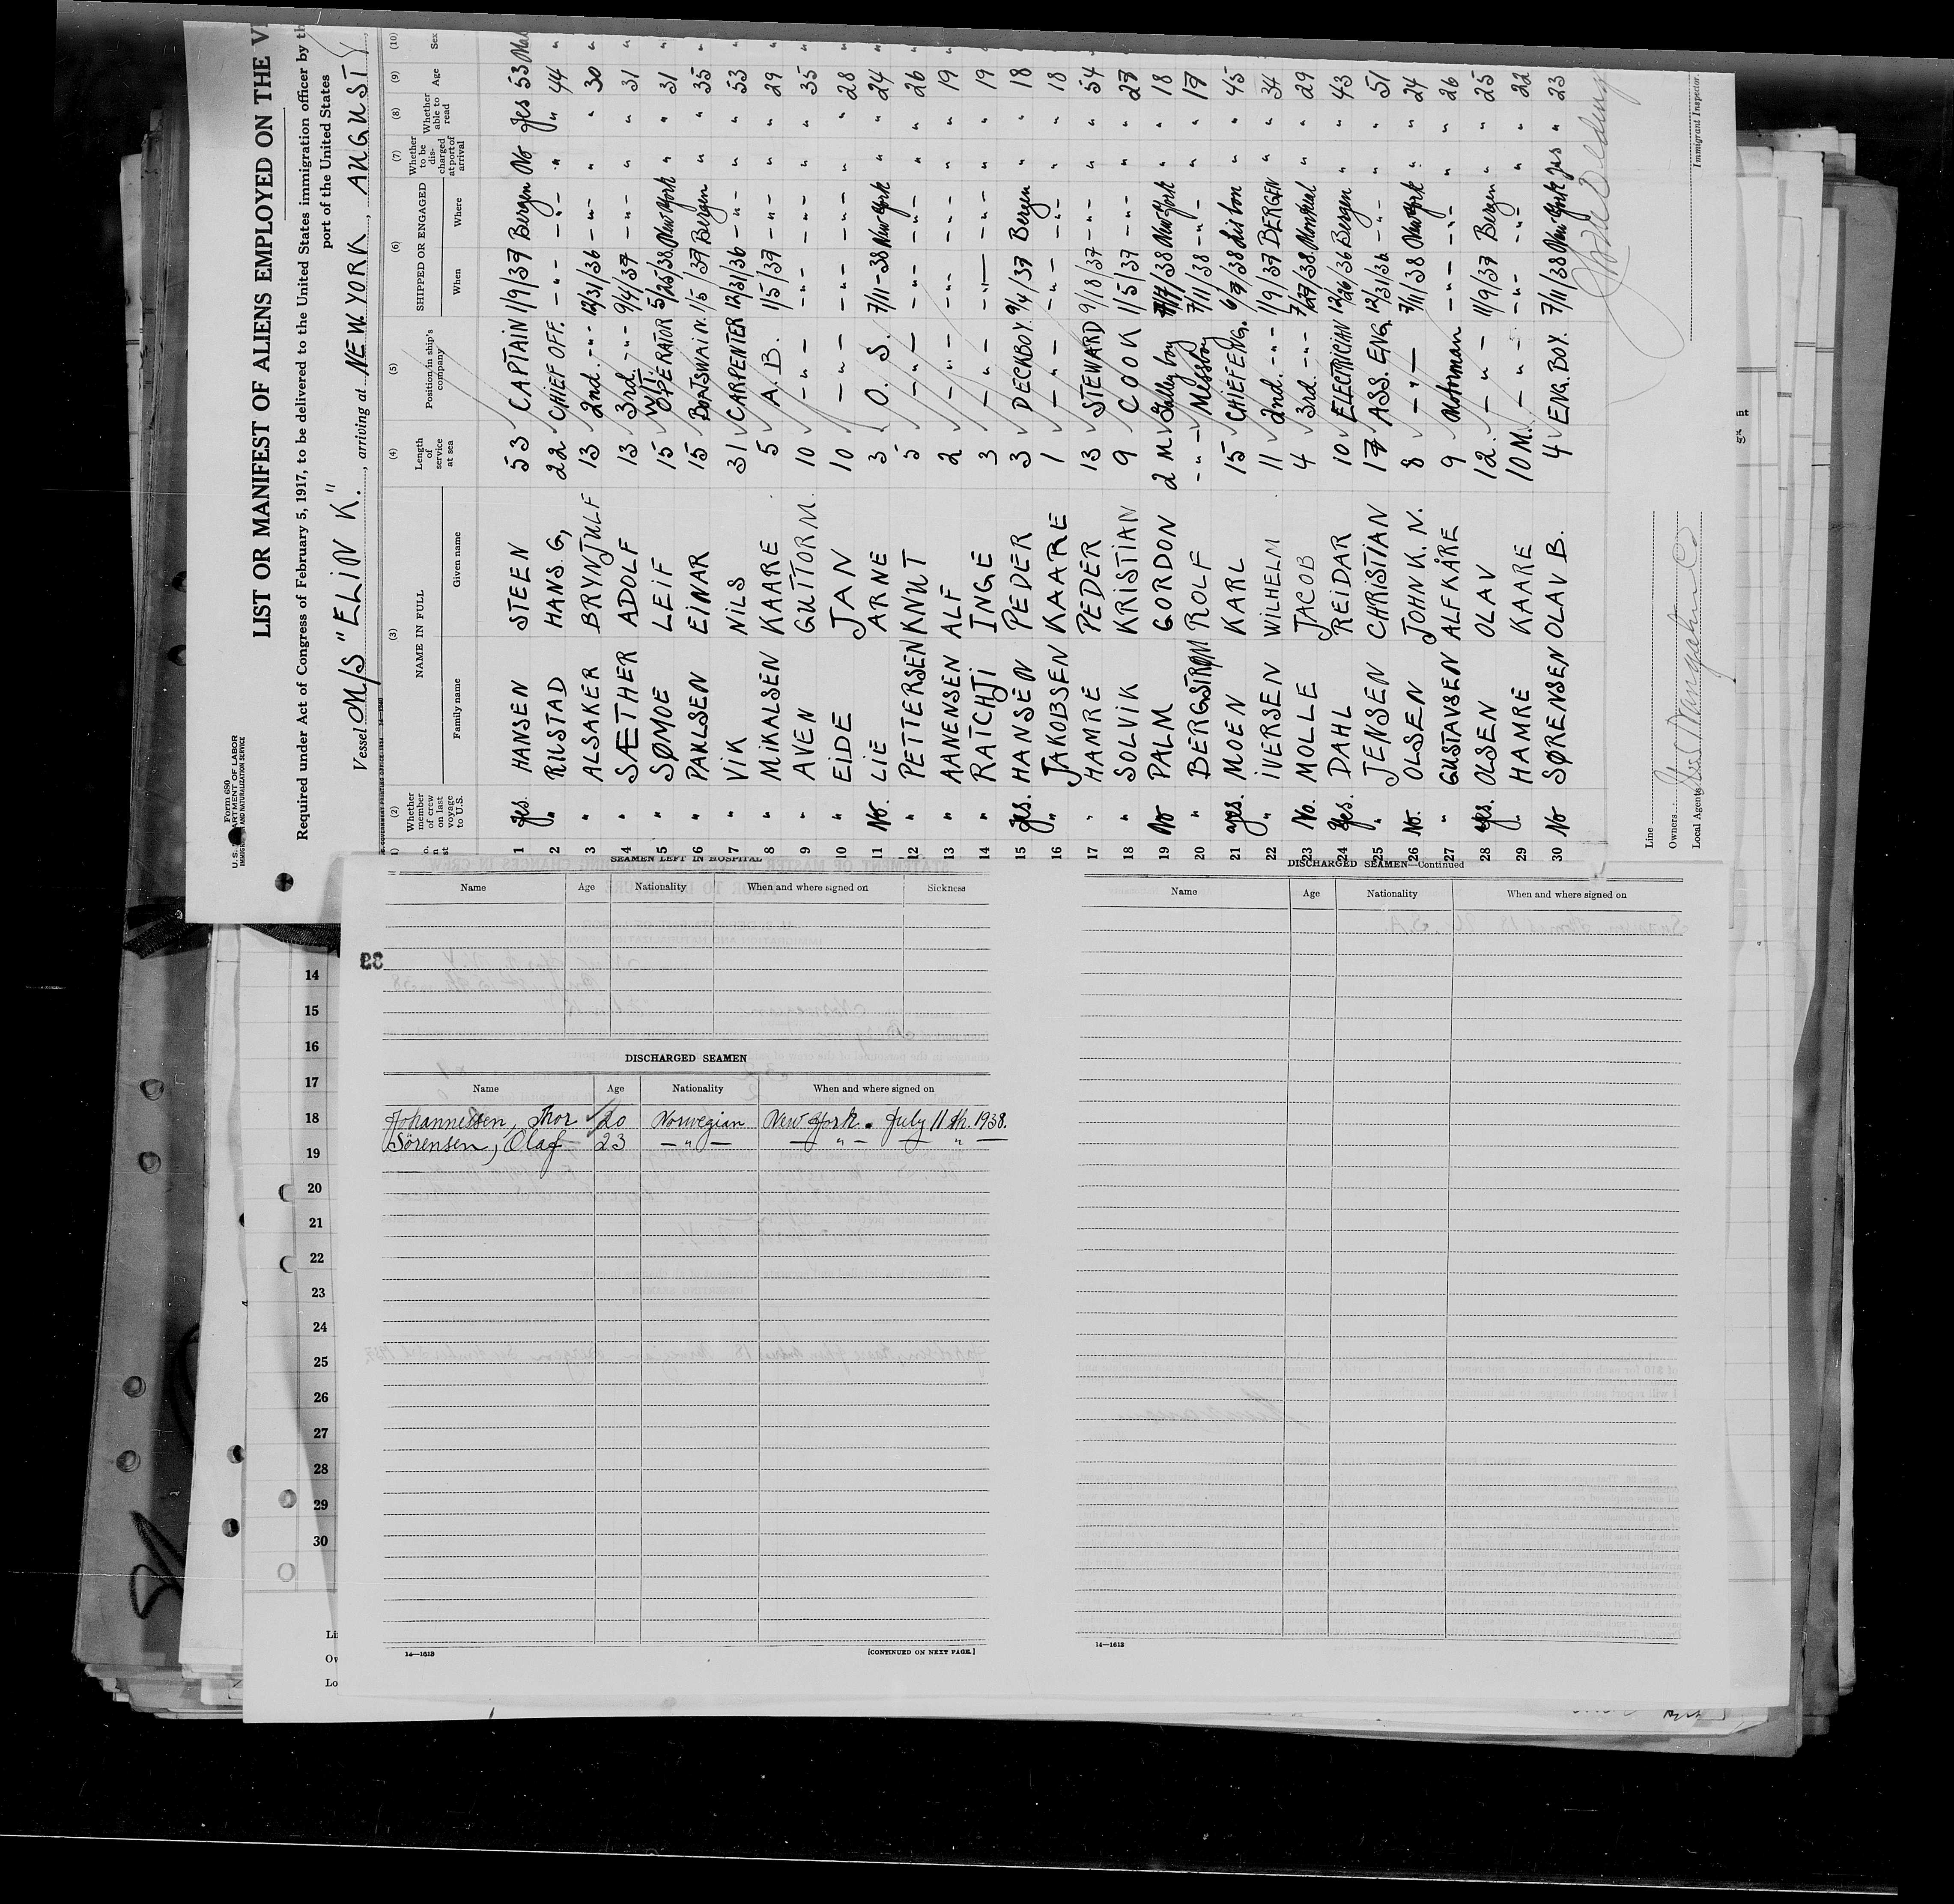 Form 680
U. S. DEPARTMENT OF LABOR
IMMIGRATION AND NATURALIZATION SERVICE
LIST OR MANIFEST OF ALIENS EMPLOYED ON THE
Required under Act of Congress of February 5, 1917, to be delivered to the United States immigration officer by
port of the United States
Vessel M/S "ELIN K.", arriving at NEW YORK, AUGUST
(2) (3) (4) (5) (6) (7) (8) (9) (10)
Whether member of crew on last voyage to U.S. NAME IN FULL Family name Given name Length of service at sea Position in ship's company SHIPPED OR ENGAGED When Where Whether to be discharged at port of arrival Whether able to read Age Sex
1 Yes. HANSEN STEEN 53 CAPTAIN 1/9/37 Bergen No Yes 53
2 " RUSTAD HANS G, 22 CHIEF OFF. -"- -"- " " 44 "
3 " ALSAKER BRYNJULF 13 2nd. -"- 12/31/36 -"- " " 30 "
4 " SÆTHER ADOLF 13 3rd. -"- 9/4/37 -"- " " 31 "
5 " SØMOE LEIF 15 W/T. OPERATOR 5/25/38 New York " " 31 "
6 " PAULSEN EINAR 15 BOATSWAIN. 1/5/37 Bergen " " 35 "
7 " VIK NILS 31 CARPENTER 12/31/36 -"- " " 53 "
8 " MIKALSEN KAARE 5 A. B. 1/5/37 -"- " " 29 "
9 " AVEN GUTTORM. 10 -"- -"- -"- " " 35 "
10 " EIDE JAN 10 -"- -"- -"- " " 28 "
11 No. LIE ARNE 3 O. S. 7/11-38 New York " " 24 "
12 " PETTERSEN KNUT 5 -"- -"- -"- " " 26 "
13 " AANENSEN ALF 2 -"- -"- -"- " " 19 "
14 " RATCHJI INGE 3 -"- -"- -"- " " 19 "
15 Yes. HANSEN PEDER 3 DECKBOY. 9/4/37 Bergen " " 18 "
16 " JAKOBSEN KAARE 1 -"- -"- -"- " " 18 "
17 " HAMRE PEDER 13 STEWARD 9/18/37 -"- " " 54 "
18 " SOLVIK KRISTIAN 9 COOK 1/5/37 -"- " " 27 "
19 No PALM GORDON 2 M Galley boy 38 New York " " 18 "
20 " BERGSTRØM ROLF -"- Messboy 7/11/38 -"- " " 17 "
21 yes. MOEN KARL 15 CHIEF ENG. 38 Lisbon " " 45 "
22 " IVERSEN WILHELM 11 2nd. -"- 1/9/37 BERGEN " " 34 "
23 No. MOLLE JACOB 4 3rd. -"- 38 Montreal " " 29 "
24 Yes. DAHL REIDAR 10 ELECTRICIAN 12/26/36 Bergen " " 43 "
25 " JENSEN CHRISTIAN 17 ASS. ENG. 12/31/36 -"- " " 51 "
26 No. OLSEN JOHN K. N. 8 -"- 7/11/38 New York " " 24 "
27 " GUSTAVSEN ALF KÅRE 9 Motorman -"- -"- " " 26 "
28 yes. OLSEN OLAV 12. -"- 11/9/37 Bergen " " 25 "
29 " HAMRE KAARE 10 M. -"- -"- -"- " " 22 "
30 No SØRENSEN OLAV B. 4 ENG. BOY. 7/11/38 New York yes " 23 "
Line
Owners
Local Agents
Immigrant Inspector.
SEAMEN LEFT IN HOSPITAL
Name Age Nationality When and where signed on Sickness
DISCHARGED SEAMEN
Name Age Nationality When and where signed on
Johannessen, Thor 20 Norwegian New York. July 11 th. 1938.
Sörensen, Olaf 23 -"- -"- -"-
14—1613
[CONTINUED ON NEXT PAGE.]
DISCHARGED SEAMEN—Continued
Name Age Nationality When and where signed on
14—1613
14
15
16
17
18
19
20
21
22
23
24
25
26
27
28
29
30